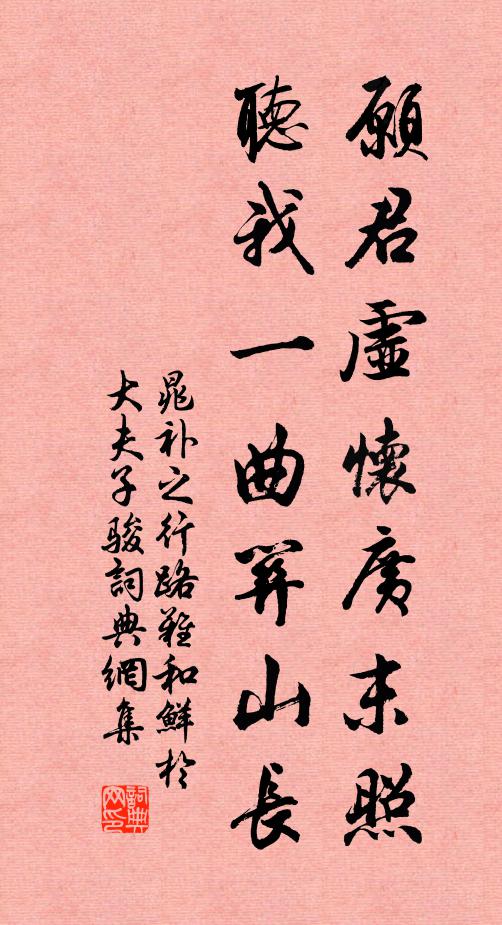 願君虛懷廣末照
聽我一曲關山長
晁补之行路難和鮮於
大夫子駿詞典網集
詞典
网印